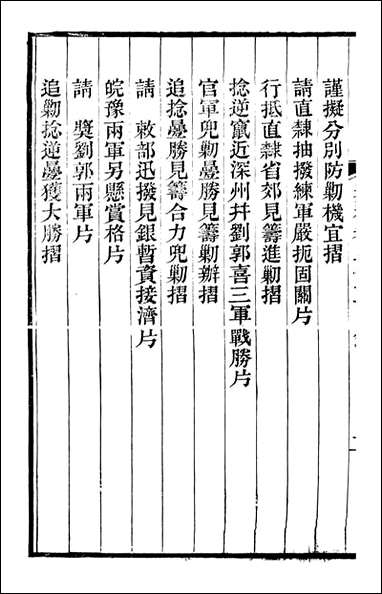 謹擬分別防勦機宜摺
請直隸抽撥練軍嚴扼固關片
行抵直隸省郊見籌進勦摺
捻逆竄近深州幷劉郭喜三軍戰勝片
官軍兜勦疊勝見籌勦辦摺
追捻疊勝見籌合力兜勦摺
請 敕部迅撥見銀暫資接濟片
皖豫兩軍另懸賞格片
請 獎劉郭兩軍片
追勦捻逆疊獲大勝摺